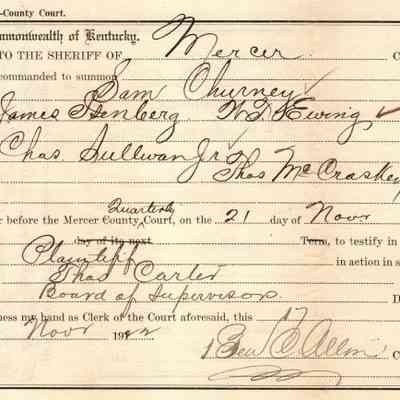 -County Court.
mmonwealth of Kentucky.
TO THE SHERIFF OF Mercer C
commanded to summon Sam Churney
James Isenberg W. D. Ewing
Chas. Sullivan Jr
Thos McCraskey
r before the Mercer County Quarterly Court, on the 21 day of Novr
day of its next Term, to testify in
Plaintiff in action in s
Thos Carter
Board of Supervisor D
ness my hand as Clerk of the Court aforesaid, this 17
Novr 19
Ben C Allin C